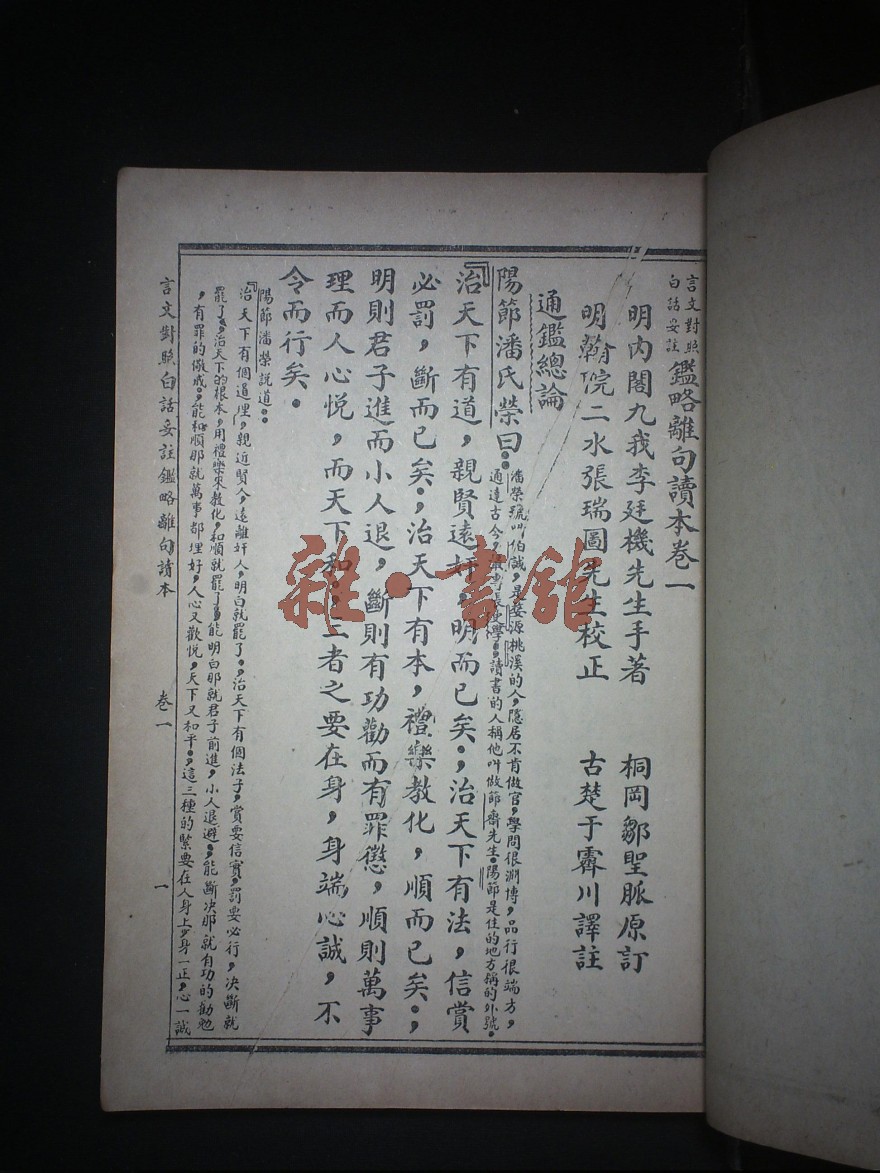 言文對照
白話妥註
鑑略離句讀本卷一
明內閣九我李廷機先生手著　桐岡鄒聖脈原訂
明翰院二水張瑞圖先生校正　古楚于霽川譯註
通鑑總論
陽節潘氏榮曰：
潘榮號叫伯誠，是婺源桃溪的人，隱居不肯做官，學問很淵博，品行很端方，
通達古今，學，讀書的人稱他叫做節齋先生。陽節是住的地方稱的外號。
『治天下有道，親賢遠奸，明而已矣；治天下有法，信賞
必罰，斷而已矣；治天下有本，禮樂教化，順而已矣；
明則君子進而小人退，斷則有功勸而有罪懲，順則萬事
理而人心悅，而天下和，三者之要在身，身端心誠，不
令而行矣。
陽節潘榮說道：
『治天下有個道理，親近賢人，遠離奸人，明白就罷了；治天下有個法子，賞要信實，罰要必行，决斷就
罷了；治天下的根本，用禮樂來教化，和順就罷了；能明白那就君子前進，小人退避；能斷决那就有功的勸勉
，有罪的儆戒；能和順那就萬事都理好，人心又歡悅，天下又和平；這三種的緊要在人身上，身一正，心一誠
言文對照白話妥註鑑略離句讀本　卷一　一
雜·書館